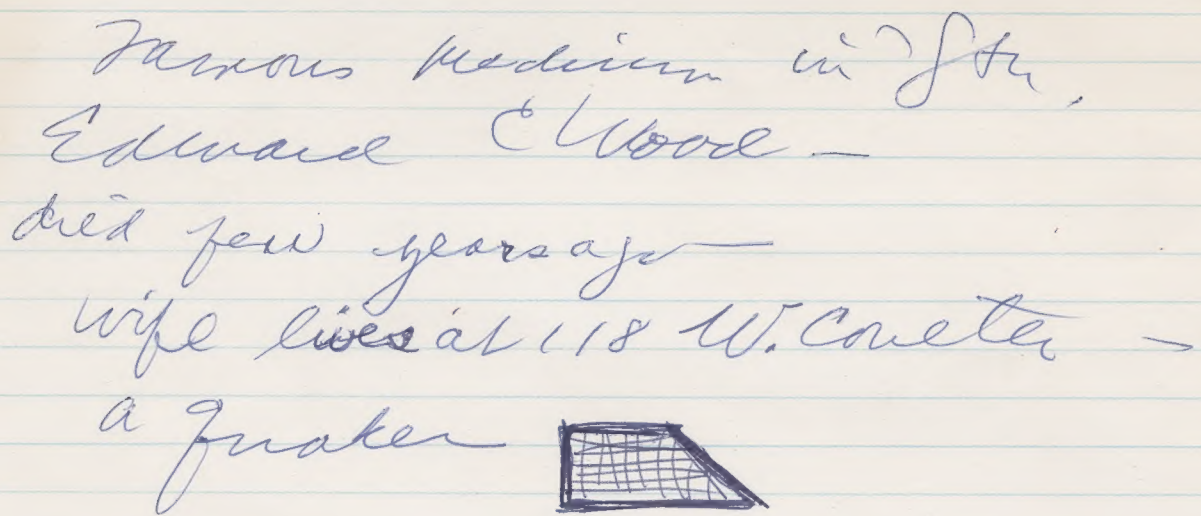 Famous medium in Gtn.
Edward C Wood —
died few years ago —
wife lives at 118 W. Coulter —
a Quaker